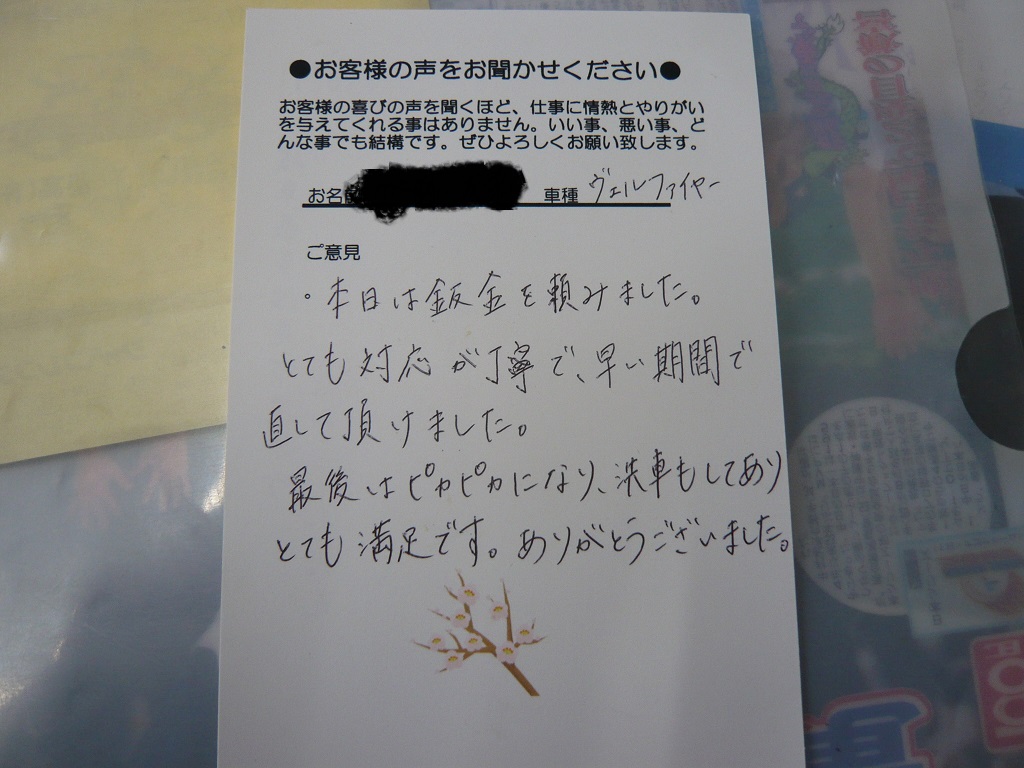 ●お客様の声をお聞かせください●
お客様の喜びの声を聞くほど、仕事に情熱とやりがい
を与えてくれる事はありません。いい事、悪い事、ど
んな事でも結構です。ぜひよろしくお願い致します。
お名前 車種 ヴェルファイヤー
ご意見
・本日は鈑金を頼みました。
とても対応が丁寧で、早い期間で
直して頂けました。
最後はピカピカになり、洗車もしてあり
とても満足です。ありがとうございました。